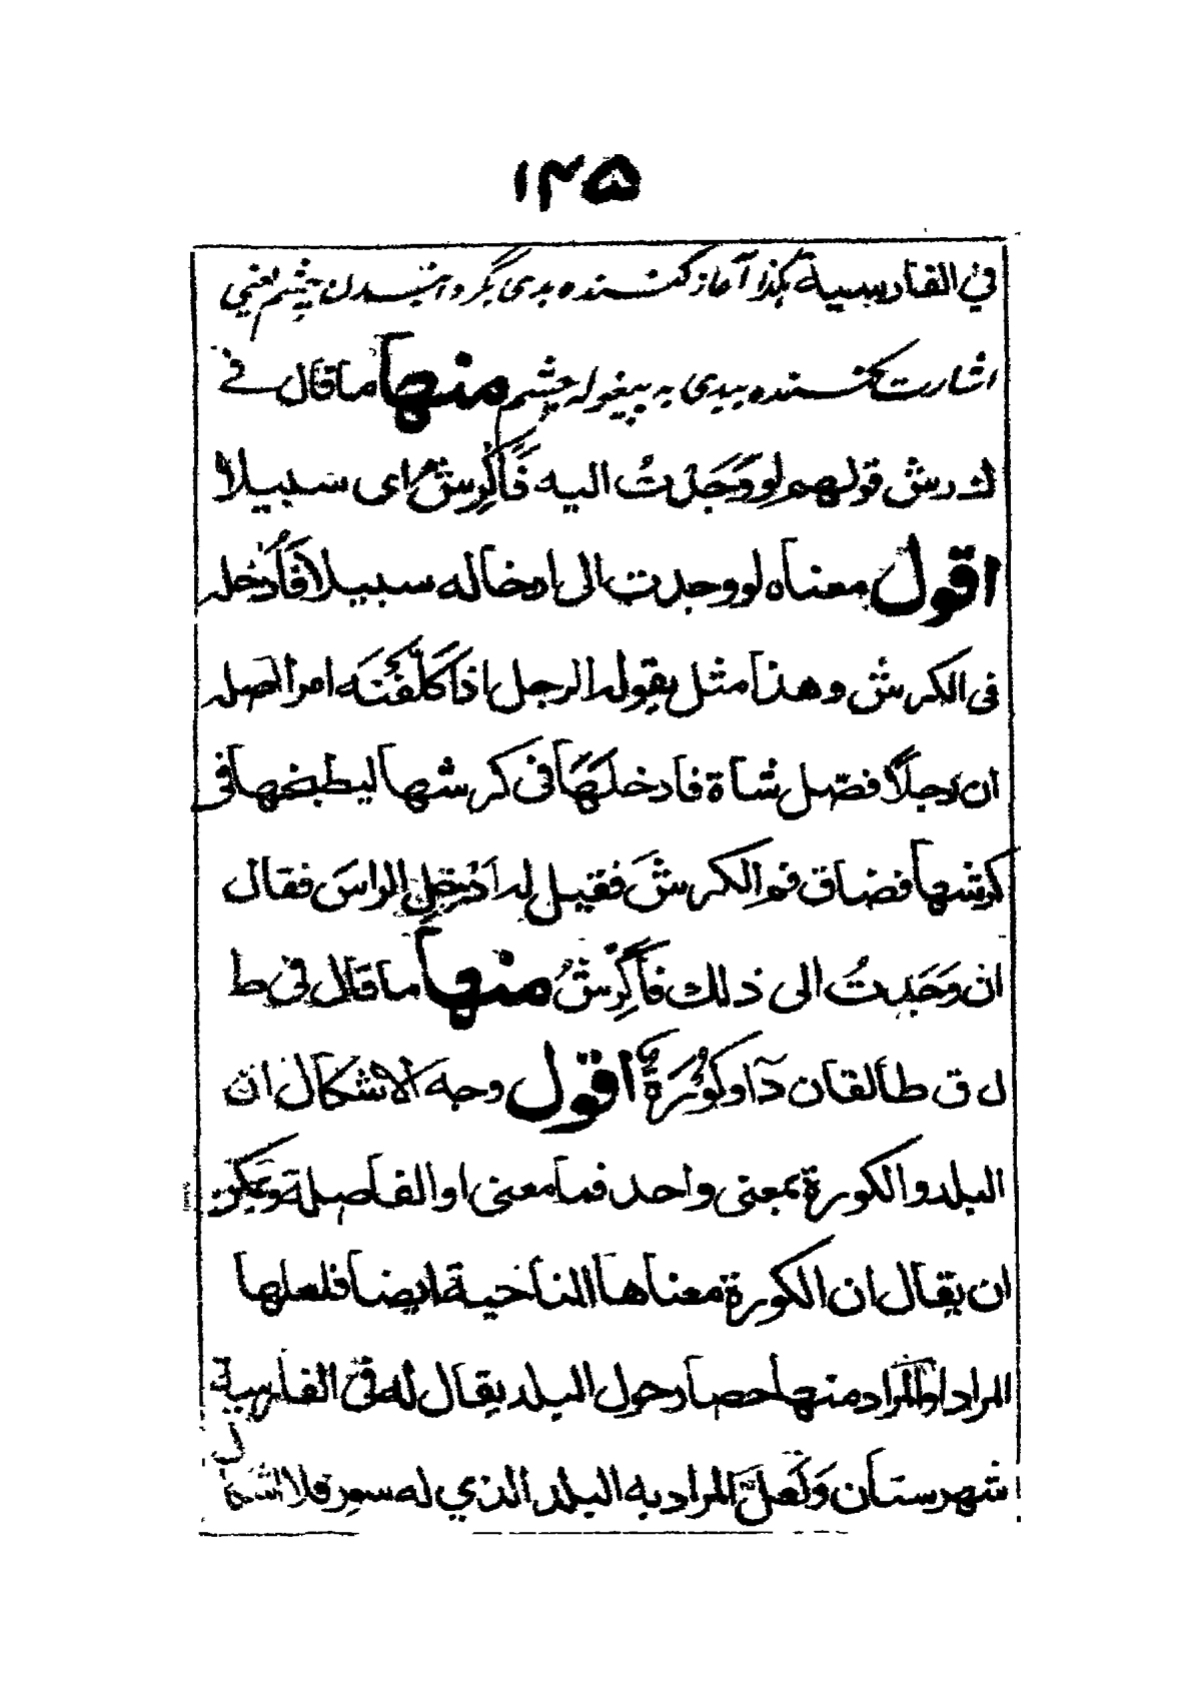 ۱۴۵
في الفارسية هكذا آغاز كننده بدى بگردانیدن چشم یعنی
اشارت كننده ببدى به بیغوله چشم منها ما قال في
ك رش قولهم لو وَجَدْتُ اليه فَاكَرِشٍ اى سبيلا
اقول معناه لو وجدت الى ادخاله سبيلا فَاُدخله
فى الكرش وهذا مثل يقوله الرجل اذا كَلَّفْتَه امرا اصله
ان رجلاً فصّل شاة فادخلهَا فى كرشها ليطبخها فى
كرشها فضاق فم الكرشَ فقيل له اَدْخِلِ الراسَ فقال
ان وَجَدتُ الى ذلك فَاكَرِشٍ منها ما قال فى ط
ل ق طالقان دٓ او كُورَةٌ اقول وجه الاشكال ان
البلد والكورة بمعنى واحد فما معنى او الفاصلة ويمكن
ان يقال ان الكورة معناها الناحية ايضا فلعلها
المراد او المراد منها حصار حول البلد يقال له فى الفارسية
شهرستان وَلَعلَّ المراد به البلد الذي له سور فلا اشكال